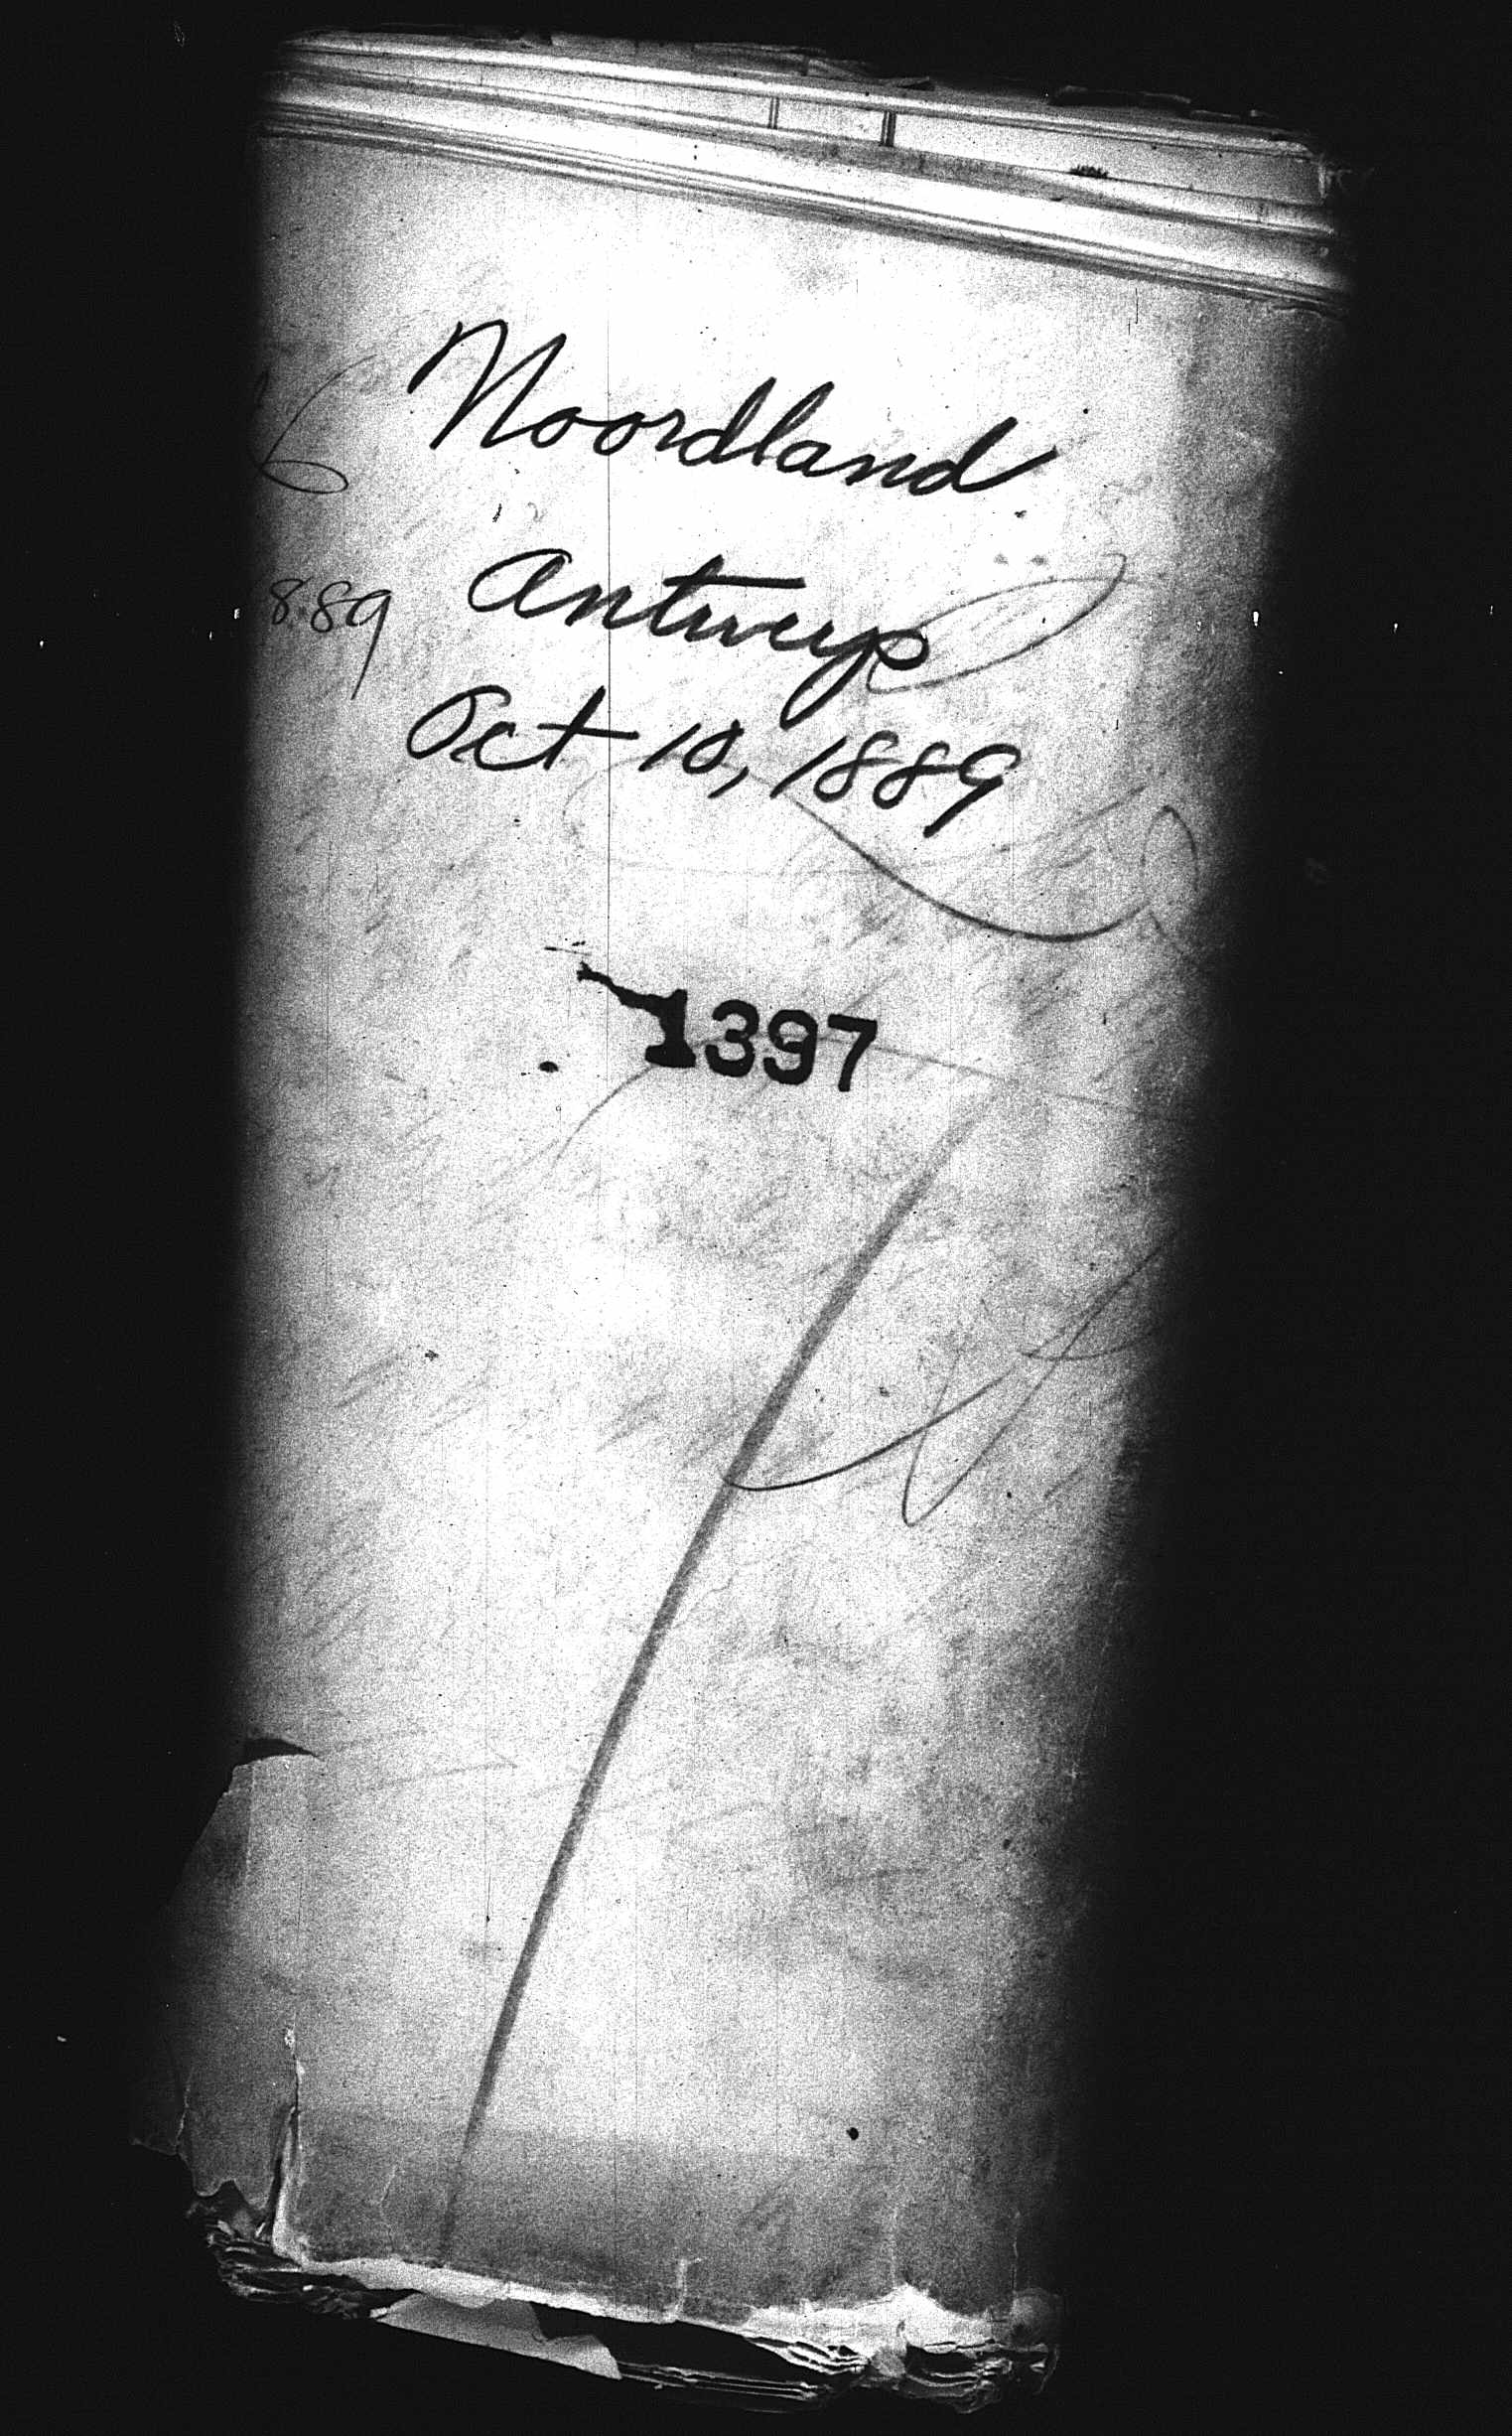 Noordland
889
Antwerp
Oct 10, 1889
1397